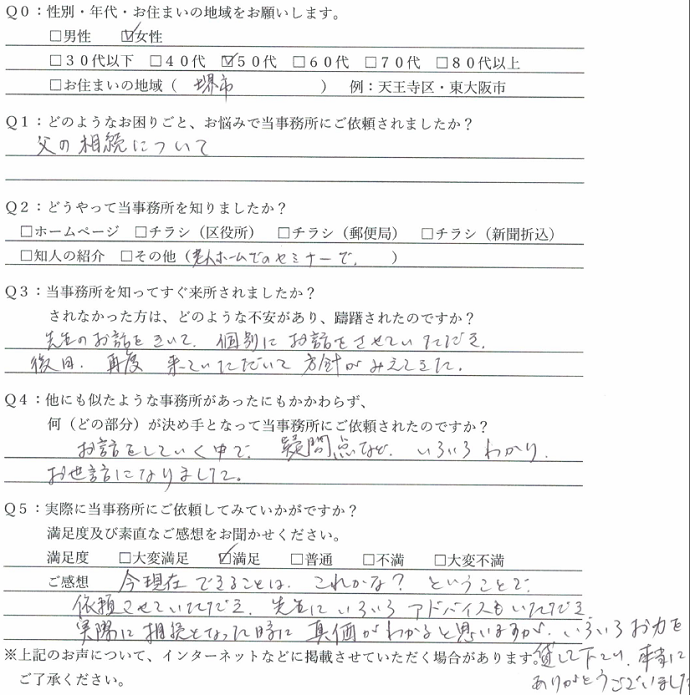 Q0：性別・年代・お住まいの地域をお願いします。
□男性　☑女性
□30代以下　□40代　☑50代　□60代　□70代　□80代以上
□お住まいの地域（　堺市　）　例：天王寺区・東大阪市
Q1：どのようなお困りごと、お悩みで当事務所にご依頼されましたか？
父の相続について
Q2：どうやって当事務所を知りましたか？
□ホームページ　□チラシ（区役所）　□チラシ（郵便局）　□チラシ（新聞折込）
□知人の紹介　□その他（老人ホームでのセミナーで．　）
Q3：当事務所を知ってすぐ来所されましたか？
されなかった方は、どのような不安があり、躊躇されたのですか？
先生のお話をきいて．個別にお話をさせていただき．
後日．再度　来ていただいて　方針がみえてきた．
Q4：他にも似たような事務所があったにもかかわらず、
何（どの部分）が決め手となって当事務所にご依頼されたのですか？
お話をしていく中で．疑問点など．いろいろわかり．
お世話になりました。
Q5：実際に当事務所にご依頼してみていかがですか？
満足度及び素直なご感想をお聞かせください。
満足度　□大変満足　☑満足　□普通　□不満　□大変不満
ご感想　今現在　できることは．これかな？　ということで．
依頼させていただき．先生にいろいろアドバイスもいただき
実際に相続となった時に真価がわかると思いますが．いろいろお力を
※上記のお声について、インターネットなどに掲載させていただく場合があります。貸して下さり．本当に
ご了承ください。　ありがとうございました